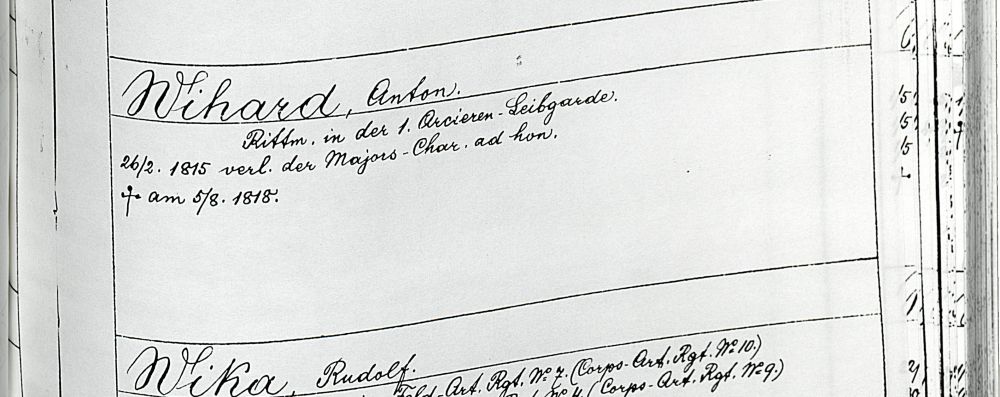 Wihard, Anton.
Rittm. in der 1. Arcieren-Leibgarde.
26/2. 1815 verl. der Majors-Char. ad hon.
† am 5/8. 1818.
Wika, Rudolf.
Feld-Art. Rgt. № 7. (Corps-Art. Rgt. № 10.)
Rgt. № 4. (Corps-Art. Rgt. № 9.)